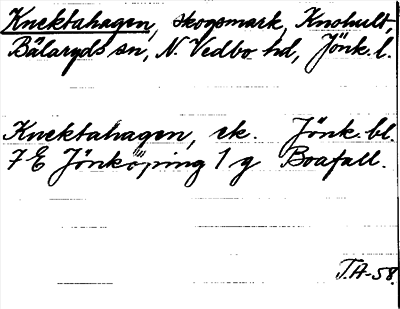 Knektahagen, skogsmark, Knohult,
Bälaryds sn, N. Vedbo hd, Jönk. l.
Knektahagen, ek. Jönk. bl.
7 E Jönköping 1 g Boafall.
T.A-58.